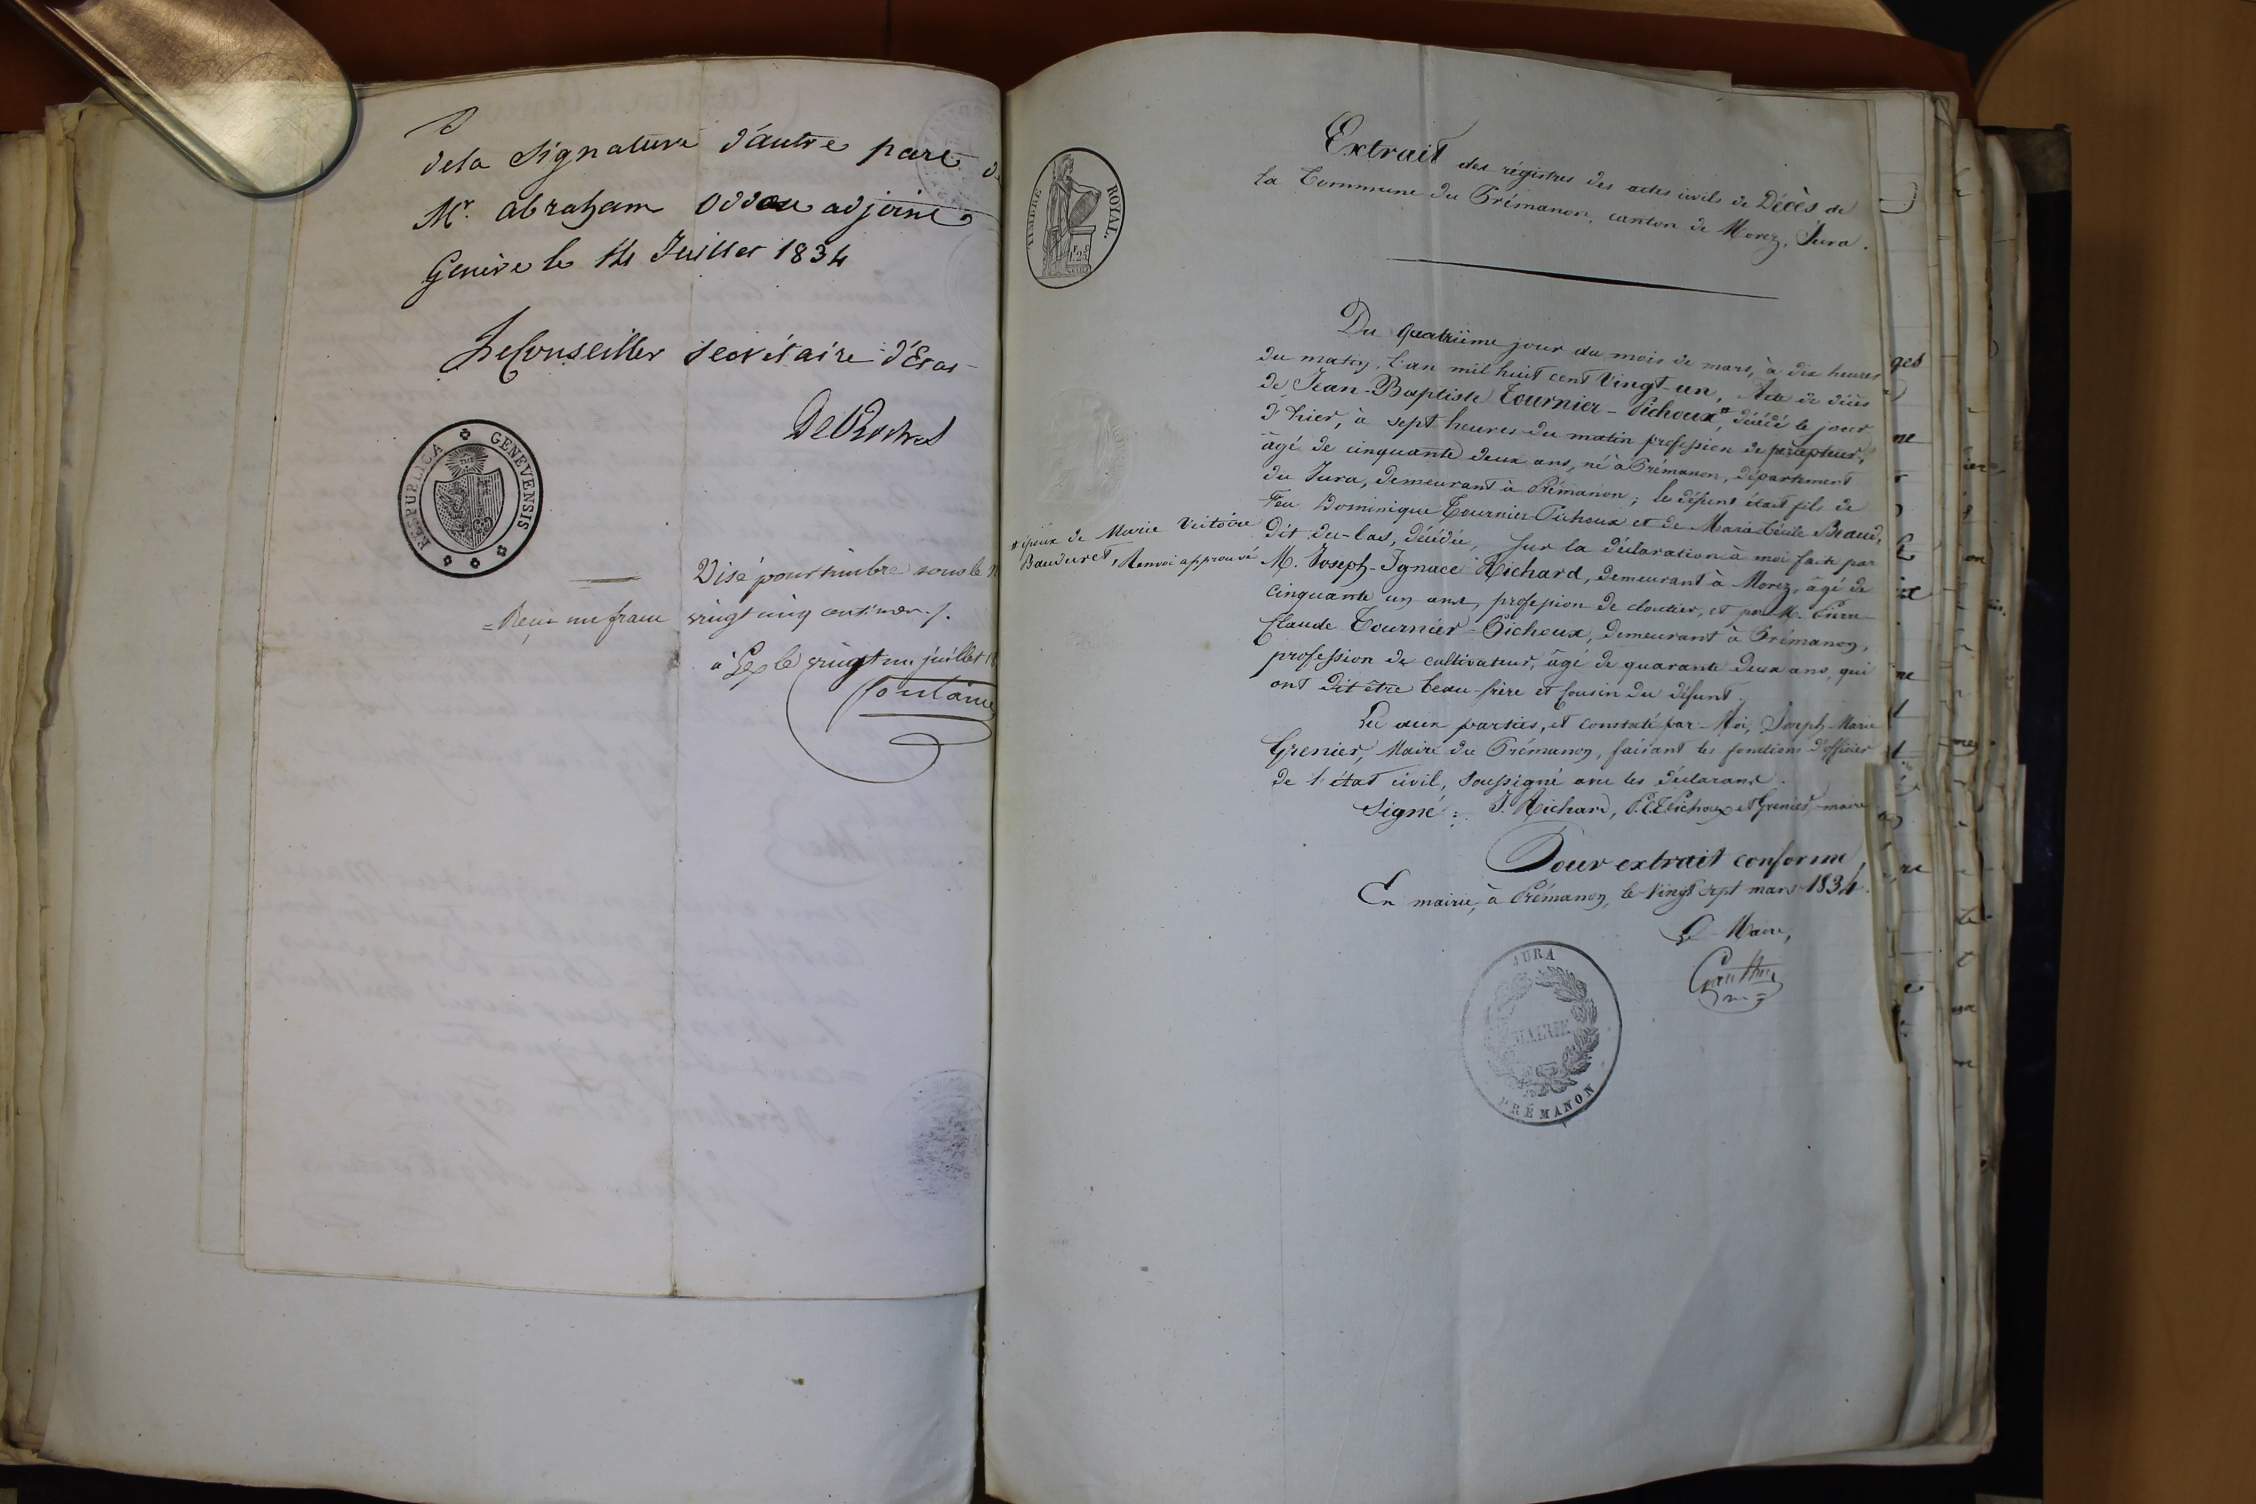 de la Signature d'autre part de
Mr. Abraham Oddou adjoint
Genève le 14 Juillet 1834
Le Conseiller Secrétaire d'Etat
RESPUBLICA GENEVENSIS
Visé pour timbre sous le N
Reçu un franc vingt cinq centimes
à Gex le vingt un juillet
TIMBRE ROYAL
1f.25
Extrait des régistres des actes civils de Décès de
la Commune de Prémanon, canton de Morez, Jura.
Du quatrième jour du mois de mars, à dix heures
du matin, l'an mil huit cent vingt-un, Acte de décès
de Jean-Baptiste Tournier-Pichoux*, décédé le jour
d'hier, à sept heures du matin profession de percepteur,
âgé de cinquante deux ans, né à Prémanon, département
du Jura, demeurant à Prémanon; le défunt était fils de
Feu Dominique Tournier Pichoux et de Marie Cécile Beaud,
* époux de Marie Victoire
Bauduret, Renvoi approuvé
dit du-las, décédée, sur la déclaration à moi faite par
M. Joseph-Ignace Richard, demeurant à Morez, âgé de
cinquante un ans, profession de cloutier, et par M. Pierre
Claude Tournier-Pichoux, demeurant à Prémanon,
profession de cultivateur, âgé de quarante deux ans, qui
ont dit être beau-frère et Cousin du défunt.
Lu aux parties, et constaté par Moi, Joseph-Marie
Grenier, Maire de Prémanon, faisant les fonctions d'officier
de l'état civil, soussigné avec les déclarans.
Signé: J. Richard, P.C.T. Pichoux et Grenier, maire
Pour extrait conforme,
En mairie, à Prémanon, le vingt sept mars 1834.
Le Maire,
JURA
MAIRIE
PRÉMANON